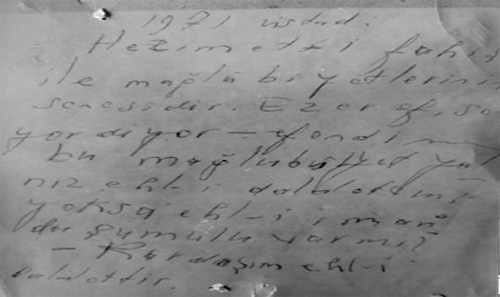 1971
Hezimet-i
ile mağlubiyetlerinin
senesidir. Ezer
yordiyor - efendim
bu mağlubiyet yal
nız ehl-i dalaletmi
yoksa ehl-i imana
da şumulu varmı?
- Kardaşım ehl-i
dalalettir.